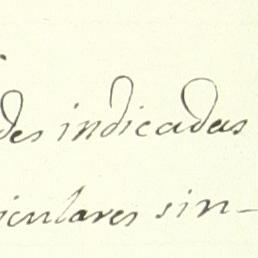 des indicadas
iculares sin-